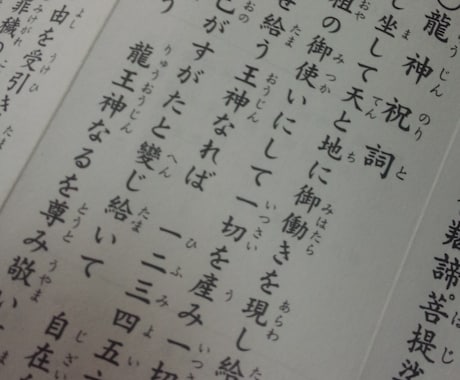 諦菩提沙
〇龍神祝詞
し坐して天と地に御働きを現し給
祖の御使いにして一切を産み一切
を給う王神なれば 一二三四五
己がすがたと變じ給いて 自在
う 龍王神なるを尊み敬い
由を受引き
罪穢の